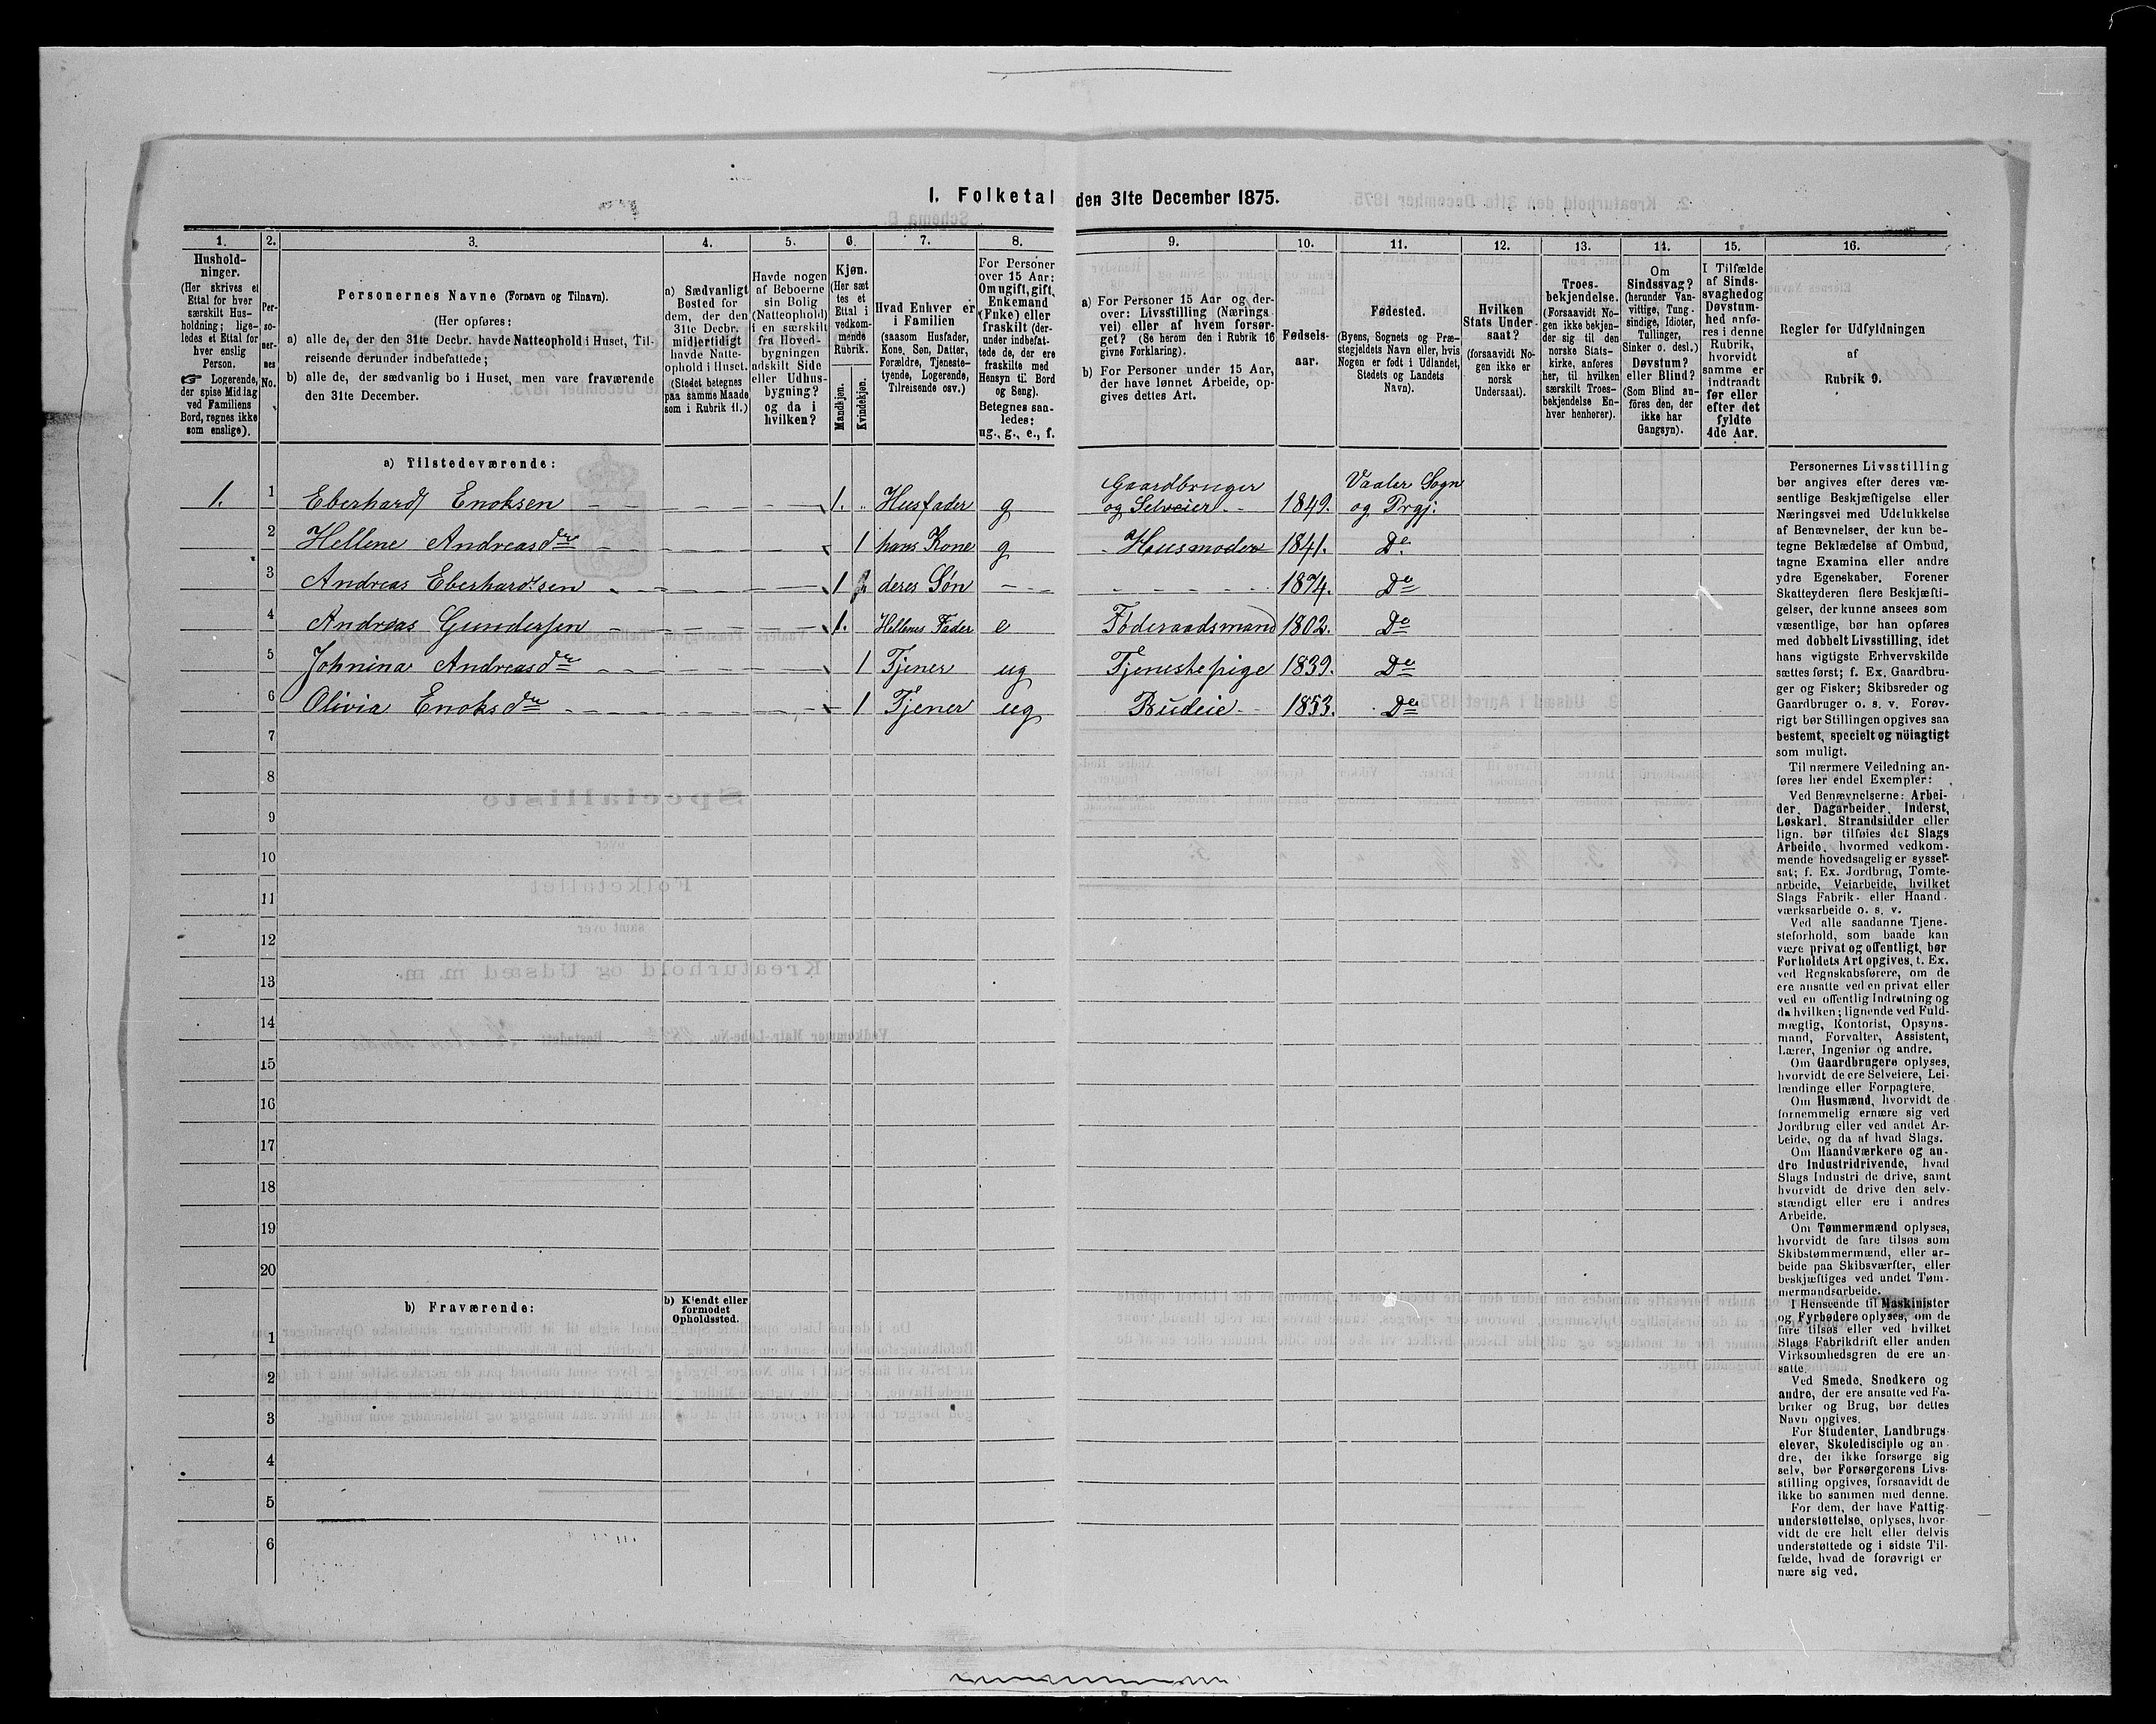 I. Folketal den 31te December 1875.
1.
2.
3.
4.
5.
6.
7.
8.
9.
10.
11.
12.
13.
14.
15.
16.
Hushold-
ninger.
(Her skrives et
Ettal for hver
særskilt Hus-
holdning; lige-
ledes et Ettal for
hver enslig
Person.
☞ Logerende,
der spise Middag
ved Familiens
Bord, regnes ikke
som enslige).
Per-
so-
ner-
nes
No.
Personernes Navne (Fornavn og Tilnavn).
(Her opføres:
a) alle de, der den 31te Decbr. havde Natteophold i Huset, Til-
reisende derunder indbefattede;
b) alle de, der sædvanlig bo i Huset, men vare fraværende
den 31te December.
a) Sædvanligt
Bosted for
dem, der den
31te Decbr.
midlertidigt
havde Natte-
ophold i Huset.
(Stedet betegnes
paa samme Maade
som i Rubrik 11.)
Havde nogen
af Beboerne
sin Bolig
(Natteophold)
i en særskilt
fra Hoved-
bygningen
adskilt Side
eller Udhus-
bygning?
og da i
hvilken?
Kjøn.
(Her sæt
tes et
Ettal i
vedkom-
mende
Rubrik.
Mandkjøn.
Kvindekjøn.
Hvad Enhver er
i Familien
(saasom Husfader,
Kone, Søn, Datter,
Forældre, Tjeneste-
tyende, Logerende,
Tilreisende osv.)
For Personer
over 15 Aar:
Om ugift, gift,
Enkemand
(Enke) eller
fraskilt (der-
under indbefat-
tede de, der ere
fraskilte med
Hensyn til Bord
og Seng).
Betegnes saa-
ledes:
ug., g., e., f.
a) For Personer 15 Aar og der-
over: Livsstilling (Nærings
vei) eller af hvem forsør-
get? (Se herom den i Rubrik 16
givne Forklaring).
b) For Personer under 15 Aar,
der have lønnet Arbeide, op-
gives dettes Art.
Fødsels-
aar.
Fødested.
(Byens, Sognets og Præ-
stegjeldets Navn eller, hvis
Nogen er født i Udlandet,
Stedets og Landets
Navn).
Hvilken
Stats Under-
saat?
(forsaavidt No-
gen ikke er
norsk
Undersaat).
Troes-
bekjendelse.
(Forsaavidt No-
gen ikke bekjen-
der sig til den
norske Stats-
kirke, anføres
her, til hvilken
særskilt Troes-
bekjendelse En-
hver henhører).
Om
Sindssvag?
(herunder Van-
vittige, Tung-
sindige, Idioter,
Tullinger,
Sinker o. desl.)
Døvstum?
eller Blind?
(Som Blind an-
føres den, der
ikke har
Gangsyn).
I Tilfælde
af Sinds-
svaghed og
Døvstum-
hed anfø-
res i denne
Rubrik,
hvorvidt
samme er
indtraadt
før eller
efter det
fyldte
4de Aar.
Regler for Udfyldningen
af
Rubrik 9.
a) Tilstedeværende:
1. 1 Eberhard Enoksen 1. Husfader g Gaardbruger og Selveier 1849. Vaaler Sogn og Prgj.
2 Hellene Andreasdtr 1 hans Kone g Husmoder 1841. Do
3 Andreas Eberhardsen 1 deres Søn 1874. Do
4 Andreas Gundersen 1. Hellenes Fader e Föderaadsmand 1802. Do
5 Johnina Andreasdtr 1 Tjener ug Tjenestepige 1839. Do
6 Olivia Enoksdtr 1 Tjener ug Budeie 1853. Do
7
8
9
10
11
12
13
14
15
16
17
18
19
20
b) Fraværende:
b) Kjendt eller
formodet
Opholdssted.
1
2
3
4
5
6
Personernes Livsstilling
bør angives efter deres væ-
sentlige Beskjæftigelse eller
Næringsvei med Udelukkelse
af Benævnelser, der kun be-
tegne Beklædelse af Ombud,
tagne Examina eller andre
ydre Egenskaber. Forener
Skatteyderen flere Beskjæfti-
gelser, der kunne ansees som
væsentlige, bør han opføres
med dobbelt Livsstilling, idet
hans vigtigste Erhvervskilde
sættes først; f. Ex. Gaardbru-
ger og Fisker; Skibsreder og
Gaardbruger o. s. v. Forøv-
rigt bør Stillingen opgives saa
bestemt, specielt og nöiagtigt
som muligt.
Til nærmere Veiledning an-
føres her endel Exempler:
Ved Benævnelserne: Arbei-
der, Dagarbeider, Inderst,
Løskarl, Strandsidder eller
lign. bør tilføies det Slags
Arbeide, hvormed vedkom-
mende hovedsagelig er syssel-
sat; f. Ex. Jordbrug, Tomte-
arbeide, Veiarbeide, hvilket
Slags Fabrik- eller Haand-
værksarbeide o. s. v.
Ved alle saadanne Tjene-
steforhold, som baade kan
være privat og offentligt, bør
Forholdets Art opgives, f. Ex.
ved Regnskabsførere, om de
ere ansatte ved en privat eller
ved en offentlig Indretning og
da hvilken; lignende ved Fuld-
mægtig, Kontorist, Opsyns-
mand, Forvalter, Assistent,
Lærer, Ingeniør og andre.
Om Gaardbrugere oplyses,
hvorvidt de ere Selveiere, Lei-
lændinge eller Forpagtere.
Om Husmænd, hvorvidt de
fornemmelig ernære sig ved
Jordbrug eller ved andet Ar-
beide, og da af hvad Slags.
Om Haandværkere og an-
dre Industridrivende, hvad
Slags Industri de drive, samt
hvorvidt de drive den selv-
stændigt eller ere i andres
Arbeide.
Om Tømmermænd oplyses,
hvorvidt de fare tilsøs som
Skibstømmermænd, eller ar-
beide paa Skibsværfter, eller
beskjæftiges ved andet Tøm-
mermandsarbeide.
I Henseende til Maskinister
og Fyrbødere oplyses, om de
fare tilsøs eller ved hvilket
Slags Fabrikdrift eller anden
Virksomhedsgren de ere an-
satte.
Ved Smede, Snedkere og
andre, der ere ansatte ved Fa-
briker og Brug, bør dettes
Navn opgives.
For Studenter, Landbrugs-
elever, Skoledisciple og an-
dre, der ikke forsørge sig
selv, bør Forsørgerens Livs-
stilling opgives, forsaavidt de
ikke bo sammen med denne.
For dem, der have Fattig-
understøttelse, oplyses, hvor-
vidt de ere helt eller delvis
understøttede og i sidste Til-
fælde, hvad de forøvrigt er
nære sig ved.